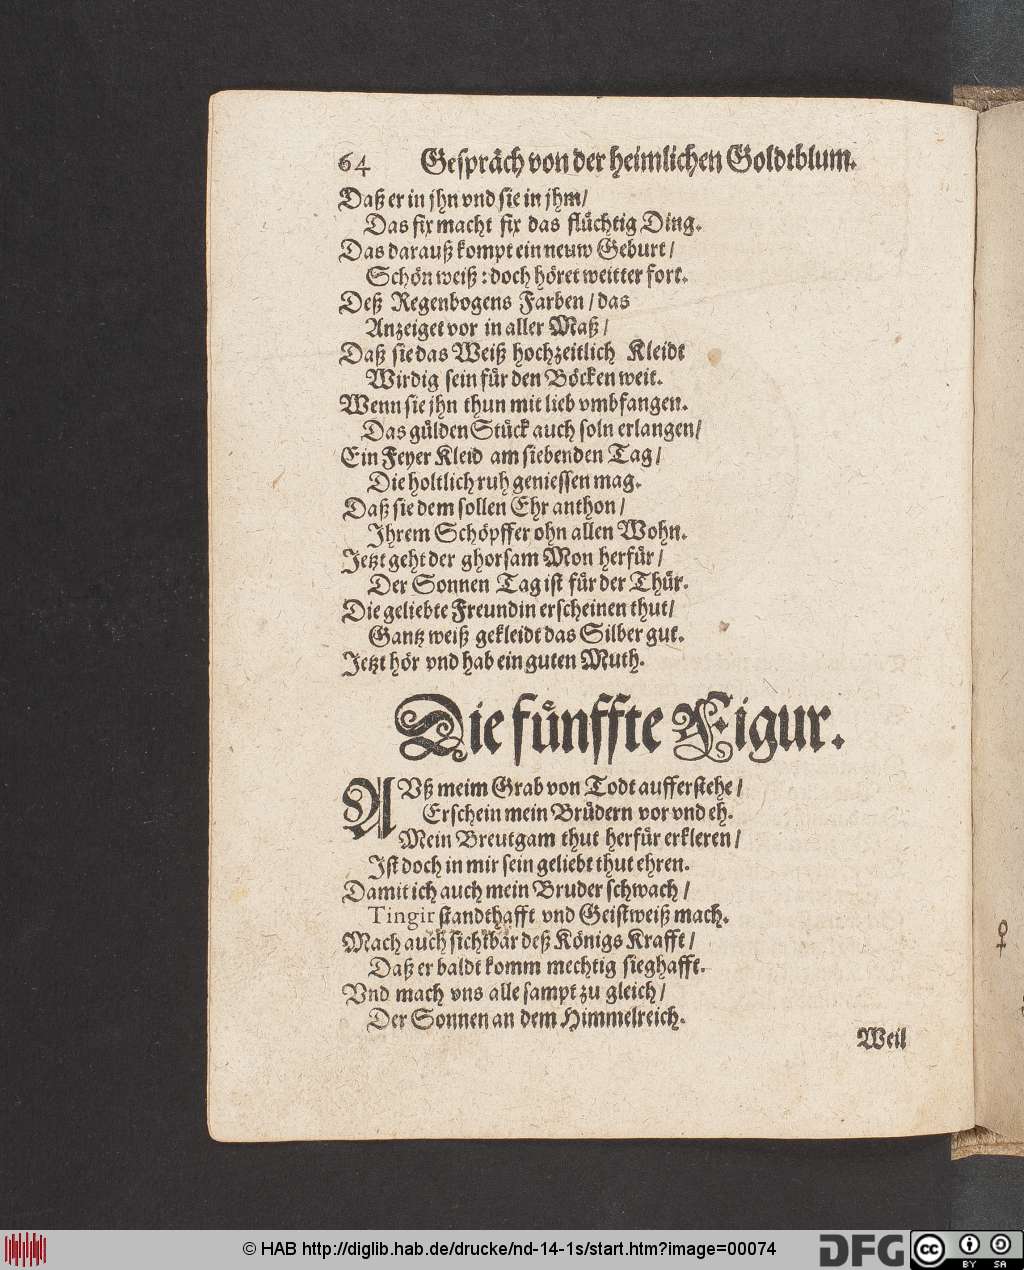 64 Gespräch von der heimlichen Goldtblum.
Daß er in jhn vnd sie in jhm/
Das fix macht fix das flüchtig Ding.
Das darauß kompt ein neuw Geburt/
Schön weiß: doch höret weitter fort.
Deß Regenbogens Farben/ das
Anzeiget vor in aller Maß/
Daß sie das Weiß hochzeitlich Kleidt
Wirdig sein für den Böcken weit.
Wenn sie jhn thun mit lieb vmbfangen.
Das gülden Stück auch soln erlangen/
Ein Feyer Kleid am siebenden Tag/
Die holtlich ruh geniessen mag.
Daß sie dem sollen Ehr anthon/
Ihrem Schöpffer ohn allen Wohn.
Jetzt geht der ghorsam Mon herfür/
Der Sonnen Tag ist für der Thür.
Die geliebte Freundin erscheinen thut/
Gantz weiß gekleidt das Silber gut.
Jetzt hör vnd hab ein guten Muth.
Die fünffte Figur.
AVß meim Grab von Todt aufferstehe/
Erschein mein Brüdern vor vnd eh.
Mein Breutgam thut herfür erkleren/
Ist doch in mir sein geliebt thut ehren.
Damit ich auch mein Bruder schwach/
Tingir standthafft vnd Geistweiß mach.
Mach auch sichtbar deß Königs Krafft/
Daß er baldt komm mechtig sieghafft.
Vnd mach vns alle sampt zu gleich/
Der Sonnen an dem Himmelreich.
Weil
♀
© HAB http://diglib.hab.de/drucke/nd-14-1s/start.htm?image=00074
DFG
cc BY SA